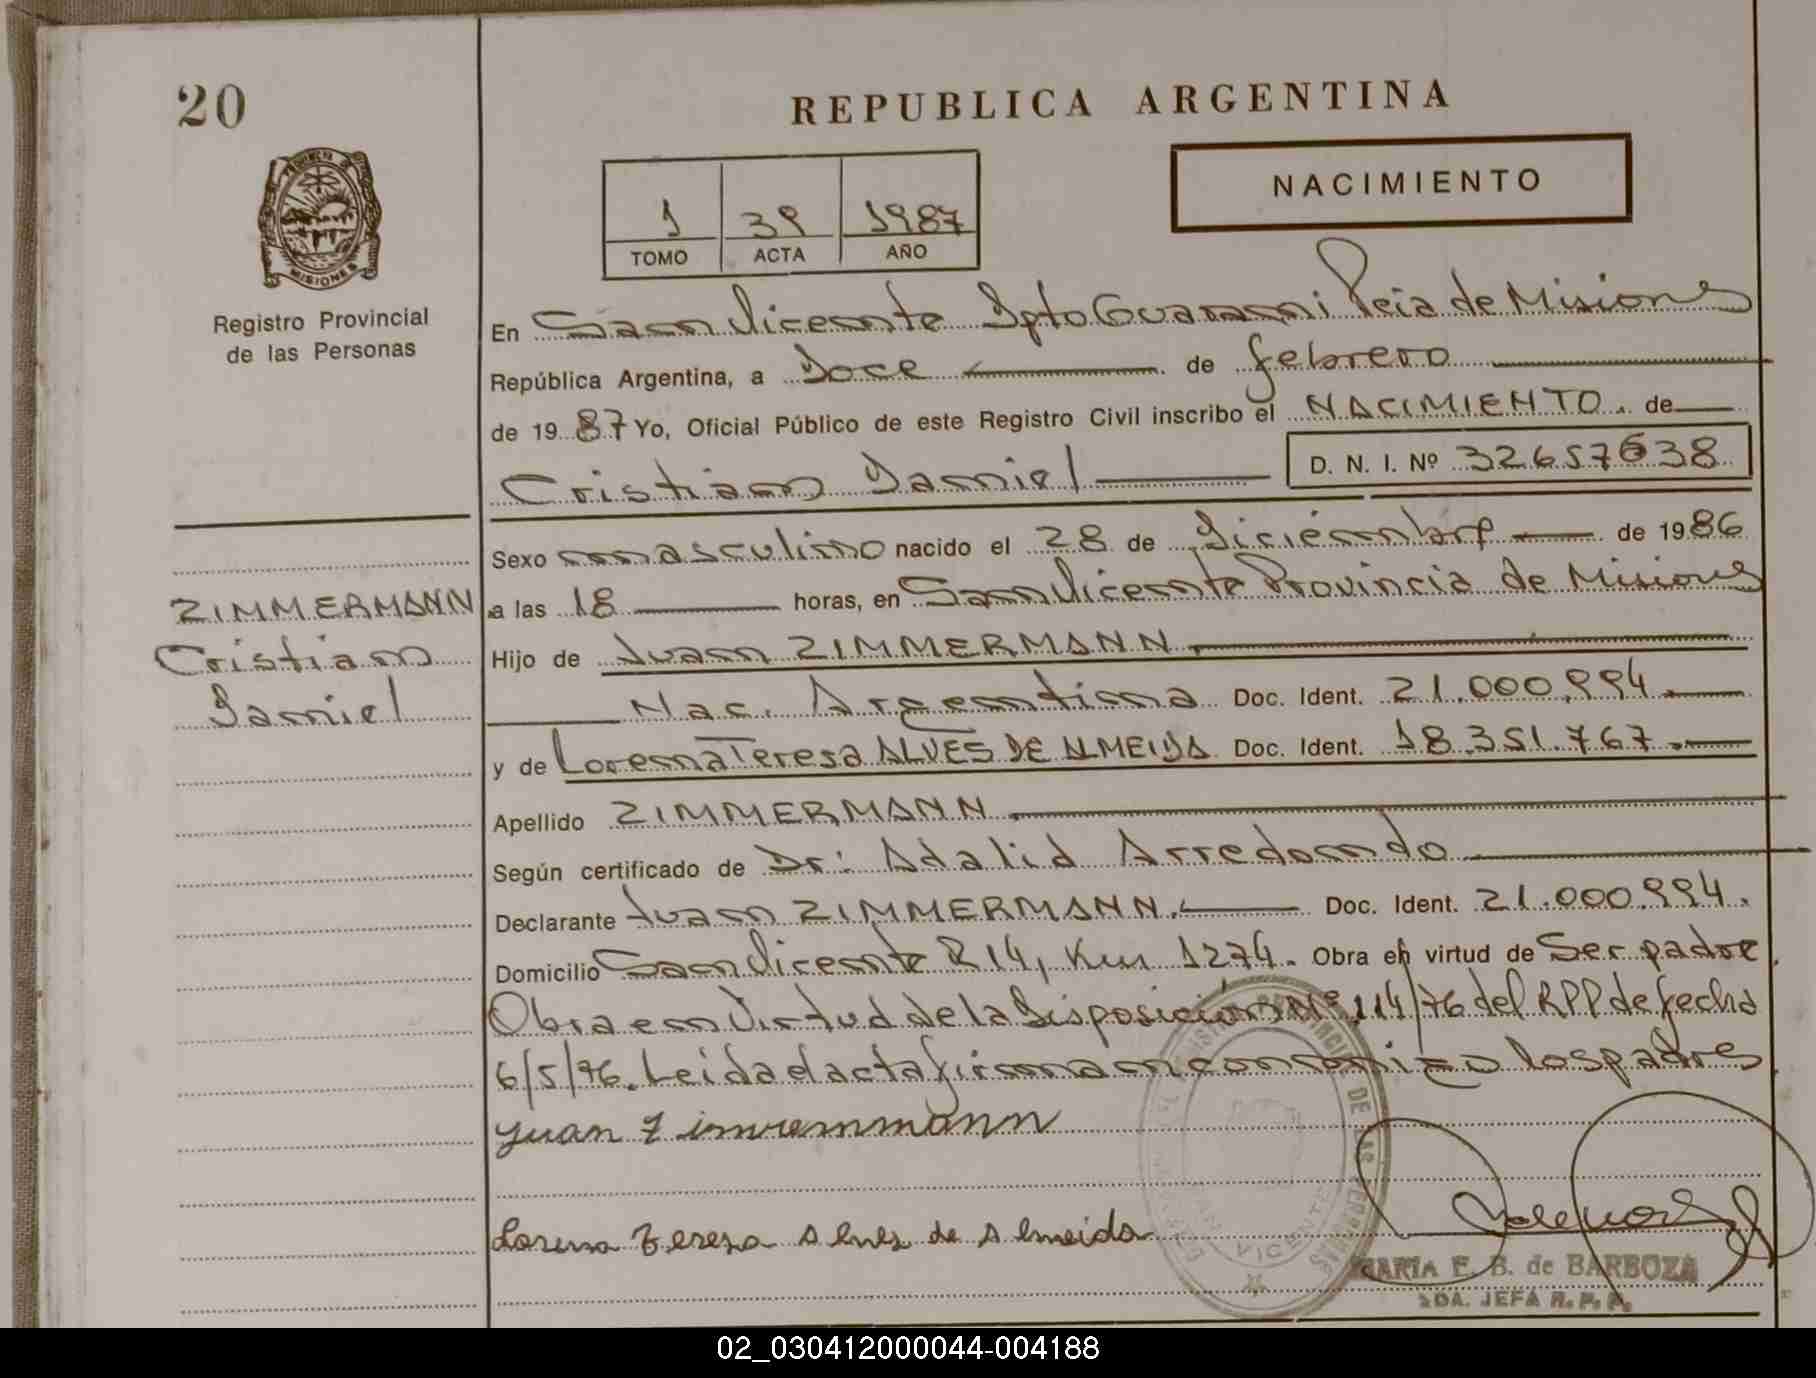 20
REPUBLICA ARGENTINA
NACIMIENTO
1 39 1987
TOMO ACTA AÑO
PROVINCIA DE MISIONES
Registro Provincial
de las Personas
En San Vicente Dpto Guarani Pcia de Misiones
República Argentina, a Doce de febrero
de 1987 Yo, Oficial Público de este Registro Civil inscribo el NACIMIENTO. de
Cristian Daniel D. N. I. Nº 32657638
Sexo masculino nacido el 28 de Diciembre de 1986
a las 18 horas, en San Vicente Provincia de Misiones
Hijo de Juan ZIMMERMANN
Nac. Argentina Doc. Ident. 21.000.994
y de Lorena Teresa ALVES DE ALMEIDA Doc. Ident. 18.351.767.
Apellido ZIMMERMANN
Según certificado de Dr: Adalid Arredondo
Declarante Juan ZIMMERMANN. Doc. Ident. 21.000.994.
Domicilio San Vicente R 14, Km 1274. Obra en virtud de Ser padre.
Obra en Virtud de la Disposición Nº 114/76 del RPP de fecha
6/5/76. Leida el acta firman conmigo los padres
Juan Zimmermann
Lorena Tereza Alves de Almeida
ZIMMERMANN
Cristian
Daniel
SAN VICENTE
MARIA E. B. de BARBOZA
2DA. JEFA R. P. P.
02_030412000044-004188